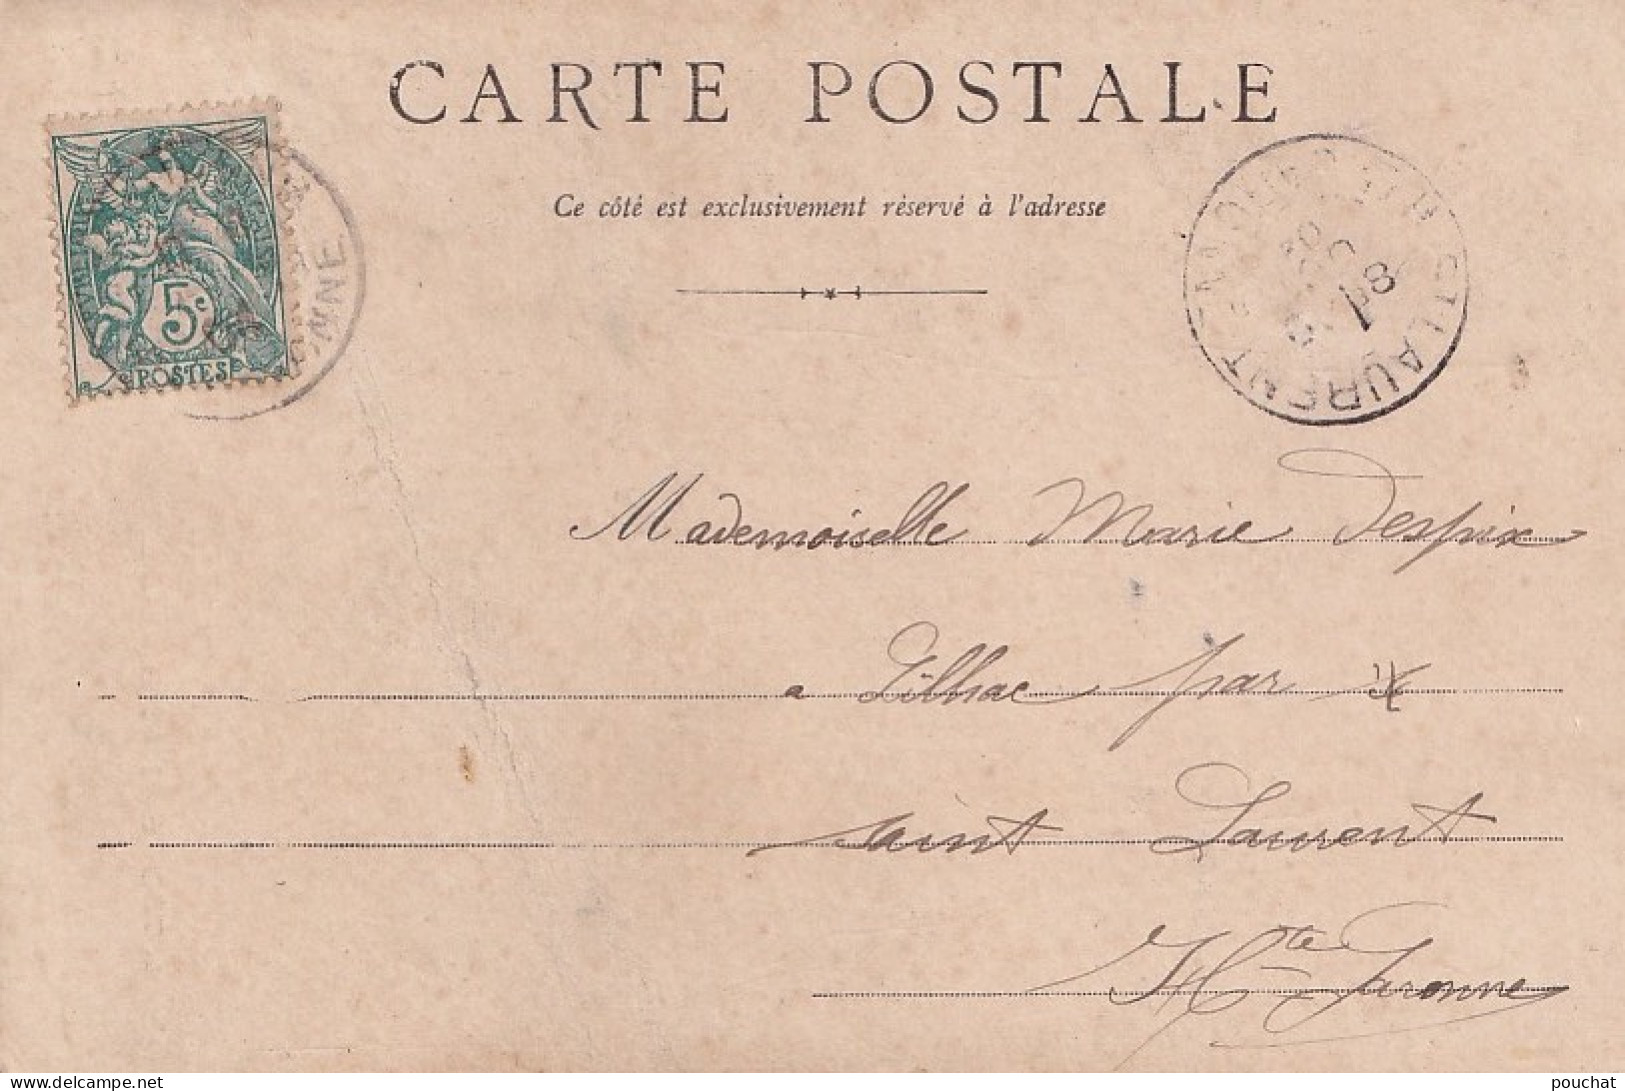 CARTE POSTALE
Ce côté est exclusivement réservé à l'adresse
5c
POSTES
ST LAURENT
Mademoiselle Marie Despix
a Lilhac par
saint Laurent
Hte Garonne
delcampe.net
pouchat